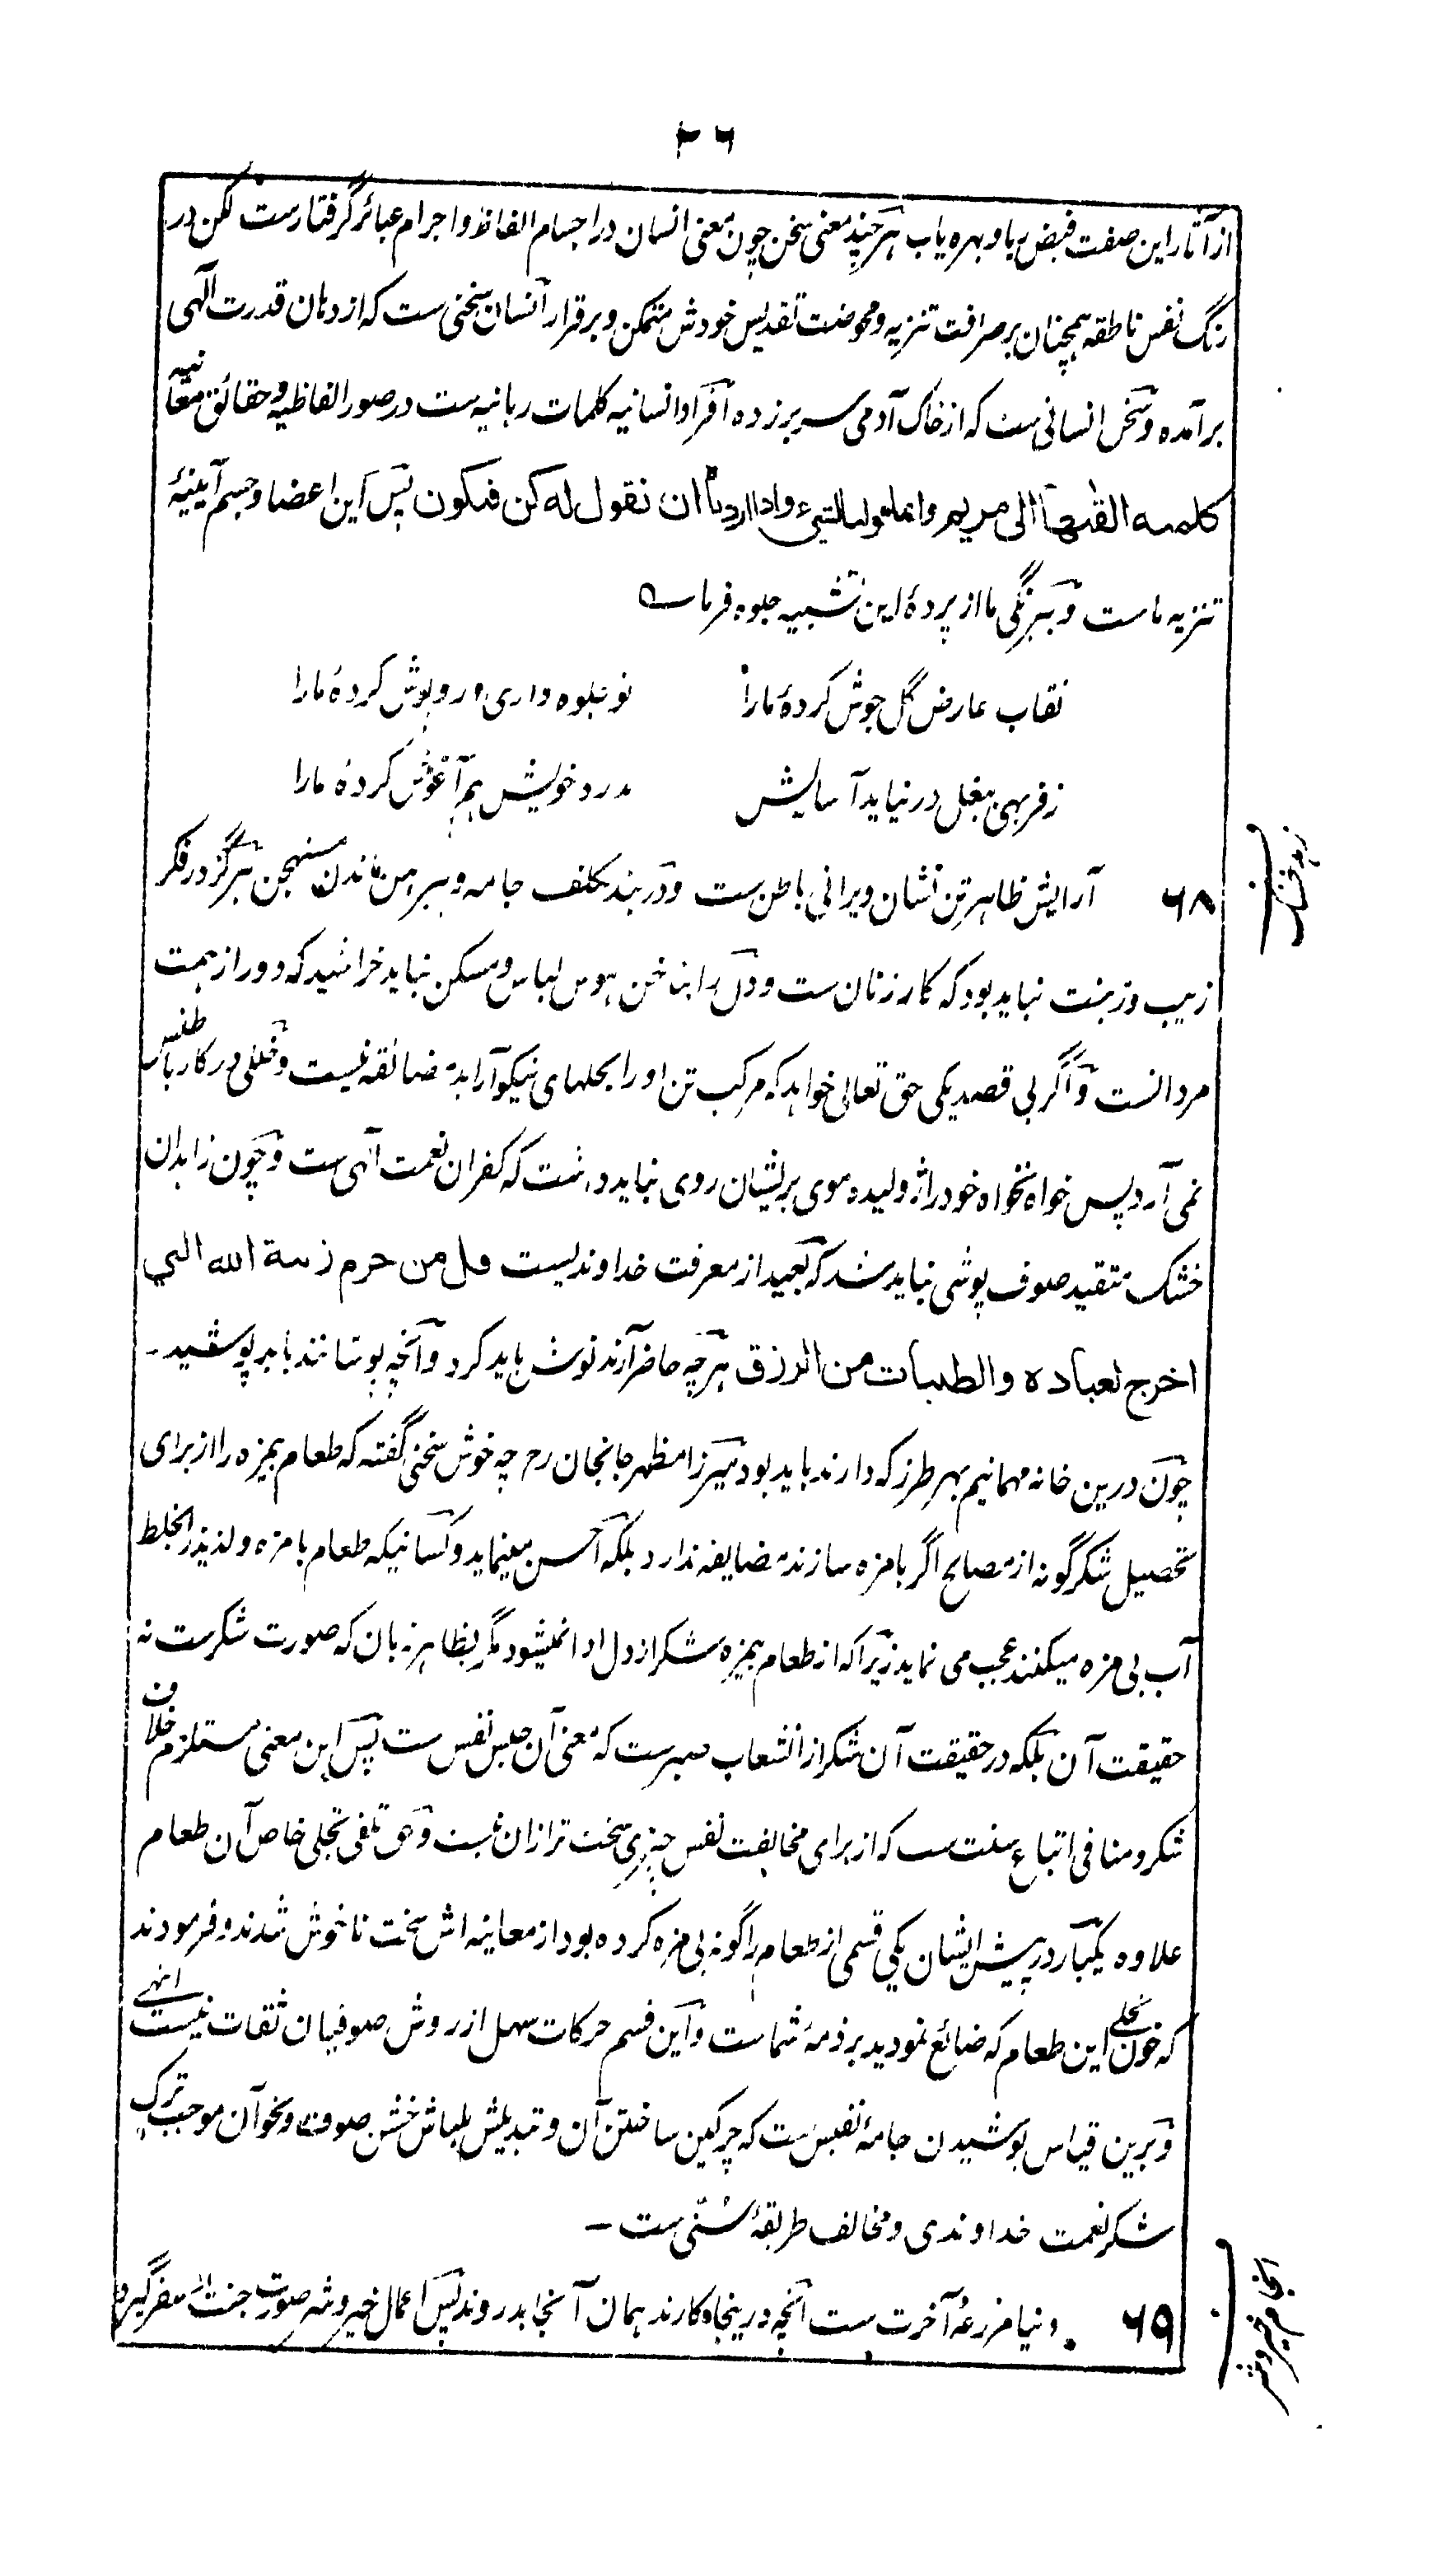 ۴۶
از آثار این صفت فیض ریا و بهره یاب هرچند معنی سخن چون معنی انسان در اجسام الفاظ و اجرام عبائر گرفتارست لکن در
رنگ نفس ناطقه همچنان بر صرافت تنزیه و محوضت تقدیس خودش متمکن و برقرار انسان سخنی ست که از دهان قدرت آلهی
برآمده و سخن انسانی ست که از خاک آدمی سر برزده افراد انسانیه کلمات ربانیه ست در صور الفاظیه و حقائق معانیه
کلمته القٰها الی مریم وانما قولنا لشیء اذا اردناه ان نقول له کن فیکون پس این اعضا و جسم آیینهٔ
تنزیه ماست و بیرنگی ما از پردهٔ این تشبیه جلوه فرماست
نقاب عارض گل جوش کردهٔ ما را
تو جلوه داری و روپوش کردهٔ ما را
ز فربهی بغل در نیاید آسایش
هم آغوش کردهٔ ما را
زهد خشک
۶۸ آرایش ظاهر تن نشان ویرانی باطن ست و در بند تکلف جامه و پیرهن ماندن مستهجن هرگز در فکر
زیب و زینت نباید بود که کار زنان ست و دل را بناخن هوس لباس و مسکن نباید خراشید که دور از همت
مردانست و اگر بی قصد یکی حق تعالی خواهد که مرکب تن او را بحلهای نیکو آراید مضائقه نیست و خللی در کار باطنش
نمی آرد پس خواه نخواه خود را ژولیده موی پریشان روی نباید داشت که کفران نعمت آلهی ست و چون زاهدان
خشک متقید صوف پوشی نباید شد که بعید از معرفت خداوندیست قل من حرم زینة الله التی
اخرج لعباده والطیبات من الرزق هرچه حاضر آرند نوش باید کرد و آنچه پوشانند باید پوشید -
چون درین خانه مهمانیم بهر طرز که دارند باید بود میرزا مظهر جانجان رح چه خوش سخنی گفته که طعام بیمزه را از برای
تحصیل شکر گونه از مصالح اگر بامزه سازند مضایقه ندارد بلکه احسن مینماید و کسانیکه طعام بامزه و لذیذ را بخلط
آب بی مزه میکنند عجب می نماید زیراکه از طعام بیمزه شکر از دل ادا نمیشود مگر بظاهر زبان که صورت شکرست نه
حقیقت آن بلکه در حقیقت آن شکر از انشعاب صبرست که معنی آن حبس نفس ست پس این معنی مستلزم خلاف
شکر و منافی اتباع سنت ست که از برای مخالفت نفس چیزی سخت تر ازان نیست و حق تلفی تجلی خاص آن طعام
علاوه یکبار در پیش ایشان یکی قسمی از طعام را گونه بی مزه کرده بود از معاینه اش سخت ناخوش شدند و فرمودند
که خون تجلی این طعام که ضائع نمودید بر ذمهٔ شماست و این قسم حرکات سهل از روش صوفیان ثقات نیست انتهی
و برین قیاس پوشیدن جامهٔ نفیس ست که چرکین ساختن آن و تبدیلش بلباش خشن صوف و نحو آن موجب ترک
شکر نعمت خداوندی و مخالف طریقهٔ سنّی ست -
انجام خیر و شر
۶۹ دنیا مزرعهٔ آخرت ست آنچه درینجا کارند همان آنجا بدروند پس اعمال خیر و شر صورت جنت